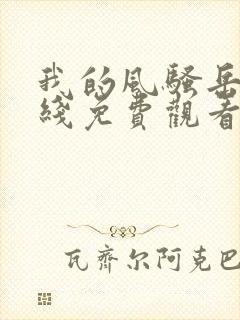 我的风骚岳
线免費觀看
瓦齊尔阿克巴